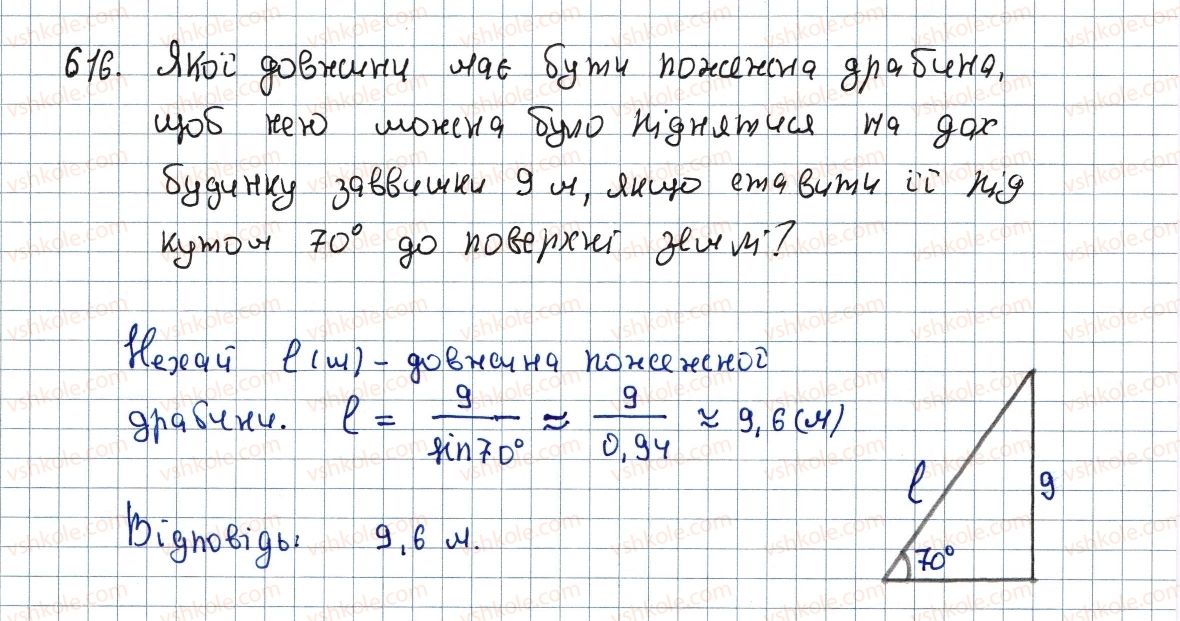 616. Якої довжини має бути пожежна драбина,
щоб нею можна було піднятися на дах
будинку заввишки 9 м, якщо ставити її під
кутом 70° до поверхні землі?
Нехай l (м) – довжина пожежної
драбини. l = 9/sin70° ≈ 9/0,94 ≈ 9,6 (м)
l
9
70°
Відповідь: 9,6 м.